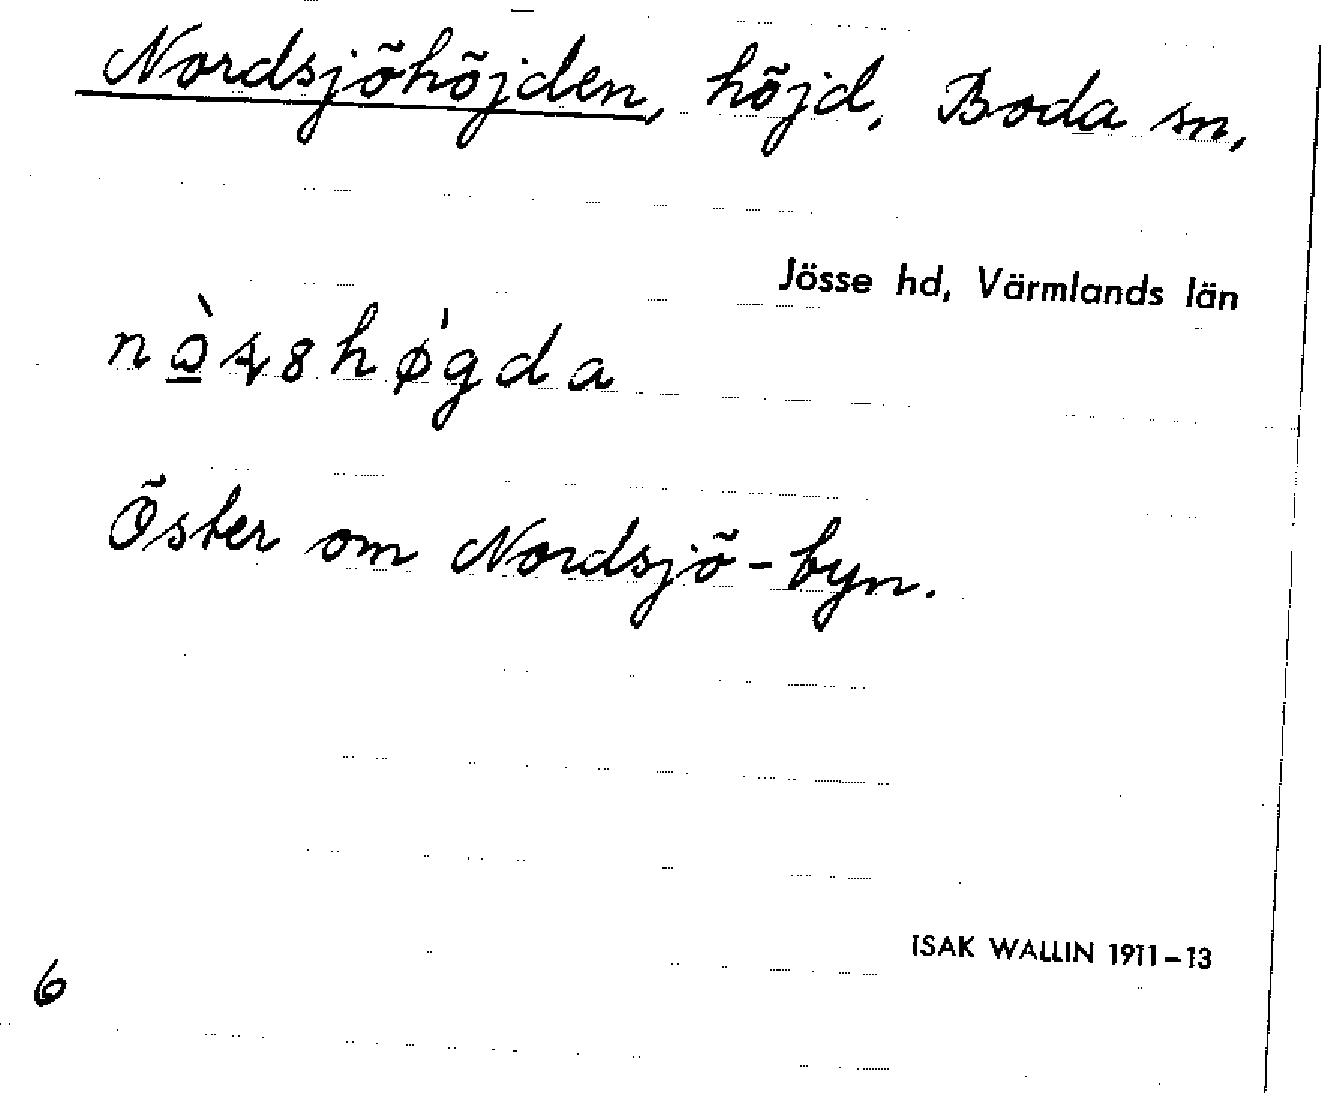 Nordsjöhöjden, höjd, Boda sn,
Jösse hd, Värmlands län
Öster om Nordsjö-byn.
ISAK WALLIN 1911-13
6